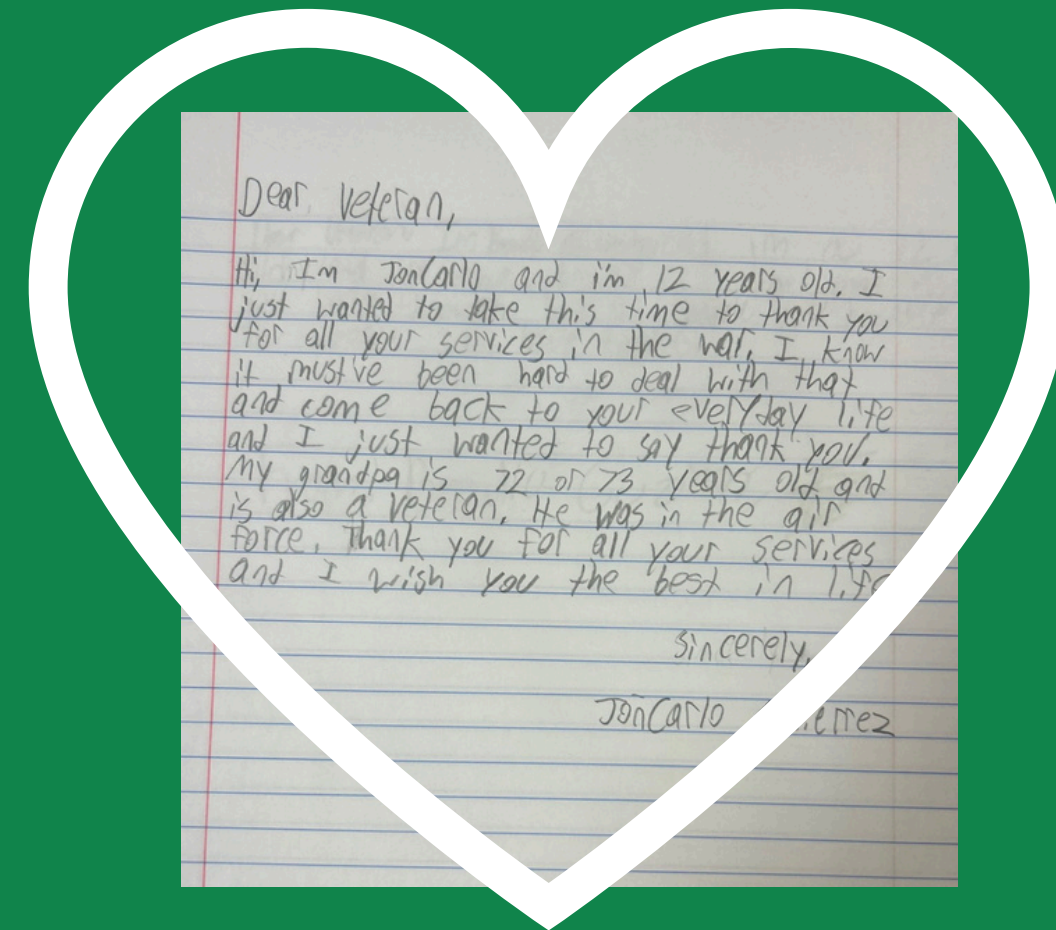 Dear Veteran,
Hi, Im JonCarlo and i'm 12 years old. I
just wanted to take this time to thank you
for all your services in the war. I know
it must've been hard to deal with that
and come back to your everyday life
and I just wanted to say thank you.
My grandpa is 72 or 73 years old and
is also a veteran. He was in the air
force. Thank you for all your services
and I wish you the best in life
Sincerely,
JonCarlo